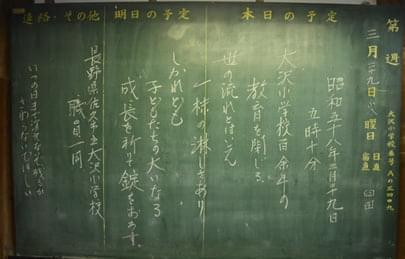 第 週
三月二十九日(火)曜日
日直
宿直
大沢小学校番号
本日の予定
昭和五十八年三月二十九日
五時十分
大沢小学校百余年の
教育を閉じる
世の流れとはいえ
一抹の淋しさあり
明日の予定
しかれども
子どもたちの大いなる
成長を祈り錠をおろす。
連絡・その他
長野県佐久市立大沢小学校
職員一同
いつの日まで
さわらないでほしい